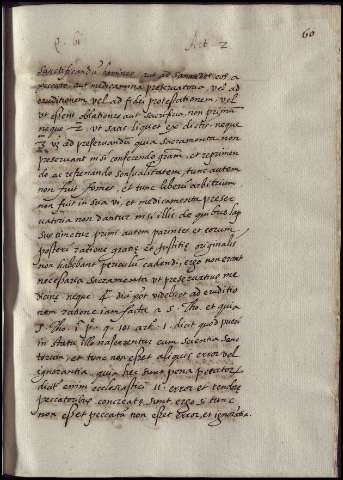 q. 61 Art. 2 60
sanctificandū homines aut ad sanandos eos a
peccato aut medicamina preservativa, vel ad
eruditionem vel ad fidei protestationem vel
ut essent oblationes aut sacrificia, non primū
neque 2. ut satis liquet ex dictis neque
3. vī ad preservandū quia sacramenta non
preservant nisi conferendo gratiam, et reprimen
do ac refrenando sensualitatem tunc autem
non fuit fomes, et tunc liberū arbitrium
non fuit in sua vi, et medicamenta preser
vatoria non dantur nisi illis de quibus lap
sus timetur primi autem parentes et eorum
posteri ratione gratiæ et justitiæ originalis
non habebant periculū cadendi, ergo non erant
necessaria sacramenta ut preservativæ me
dicinæ neque 4. videlicet ad eruditio
nem ratione iam facta a S. Tho. et quia
S. Tho. 1. p. q. 101 art. 1. dicit quod pueri
in statu illo nascerentur cum scientia sanc
torum, et tunc non esset aliquis error vel
ignorantia, quia hec sunt pena peccator.
dicit enim ecclesiastici 11. error et tenebre
peccatoribus concreata sunt ergo si tunc
non esset peccatū non esset error, et ignorantia.